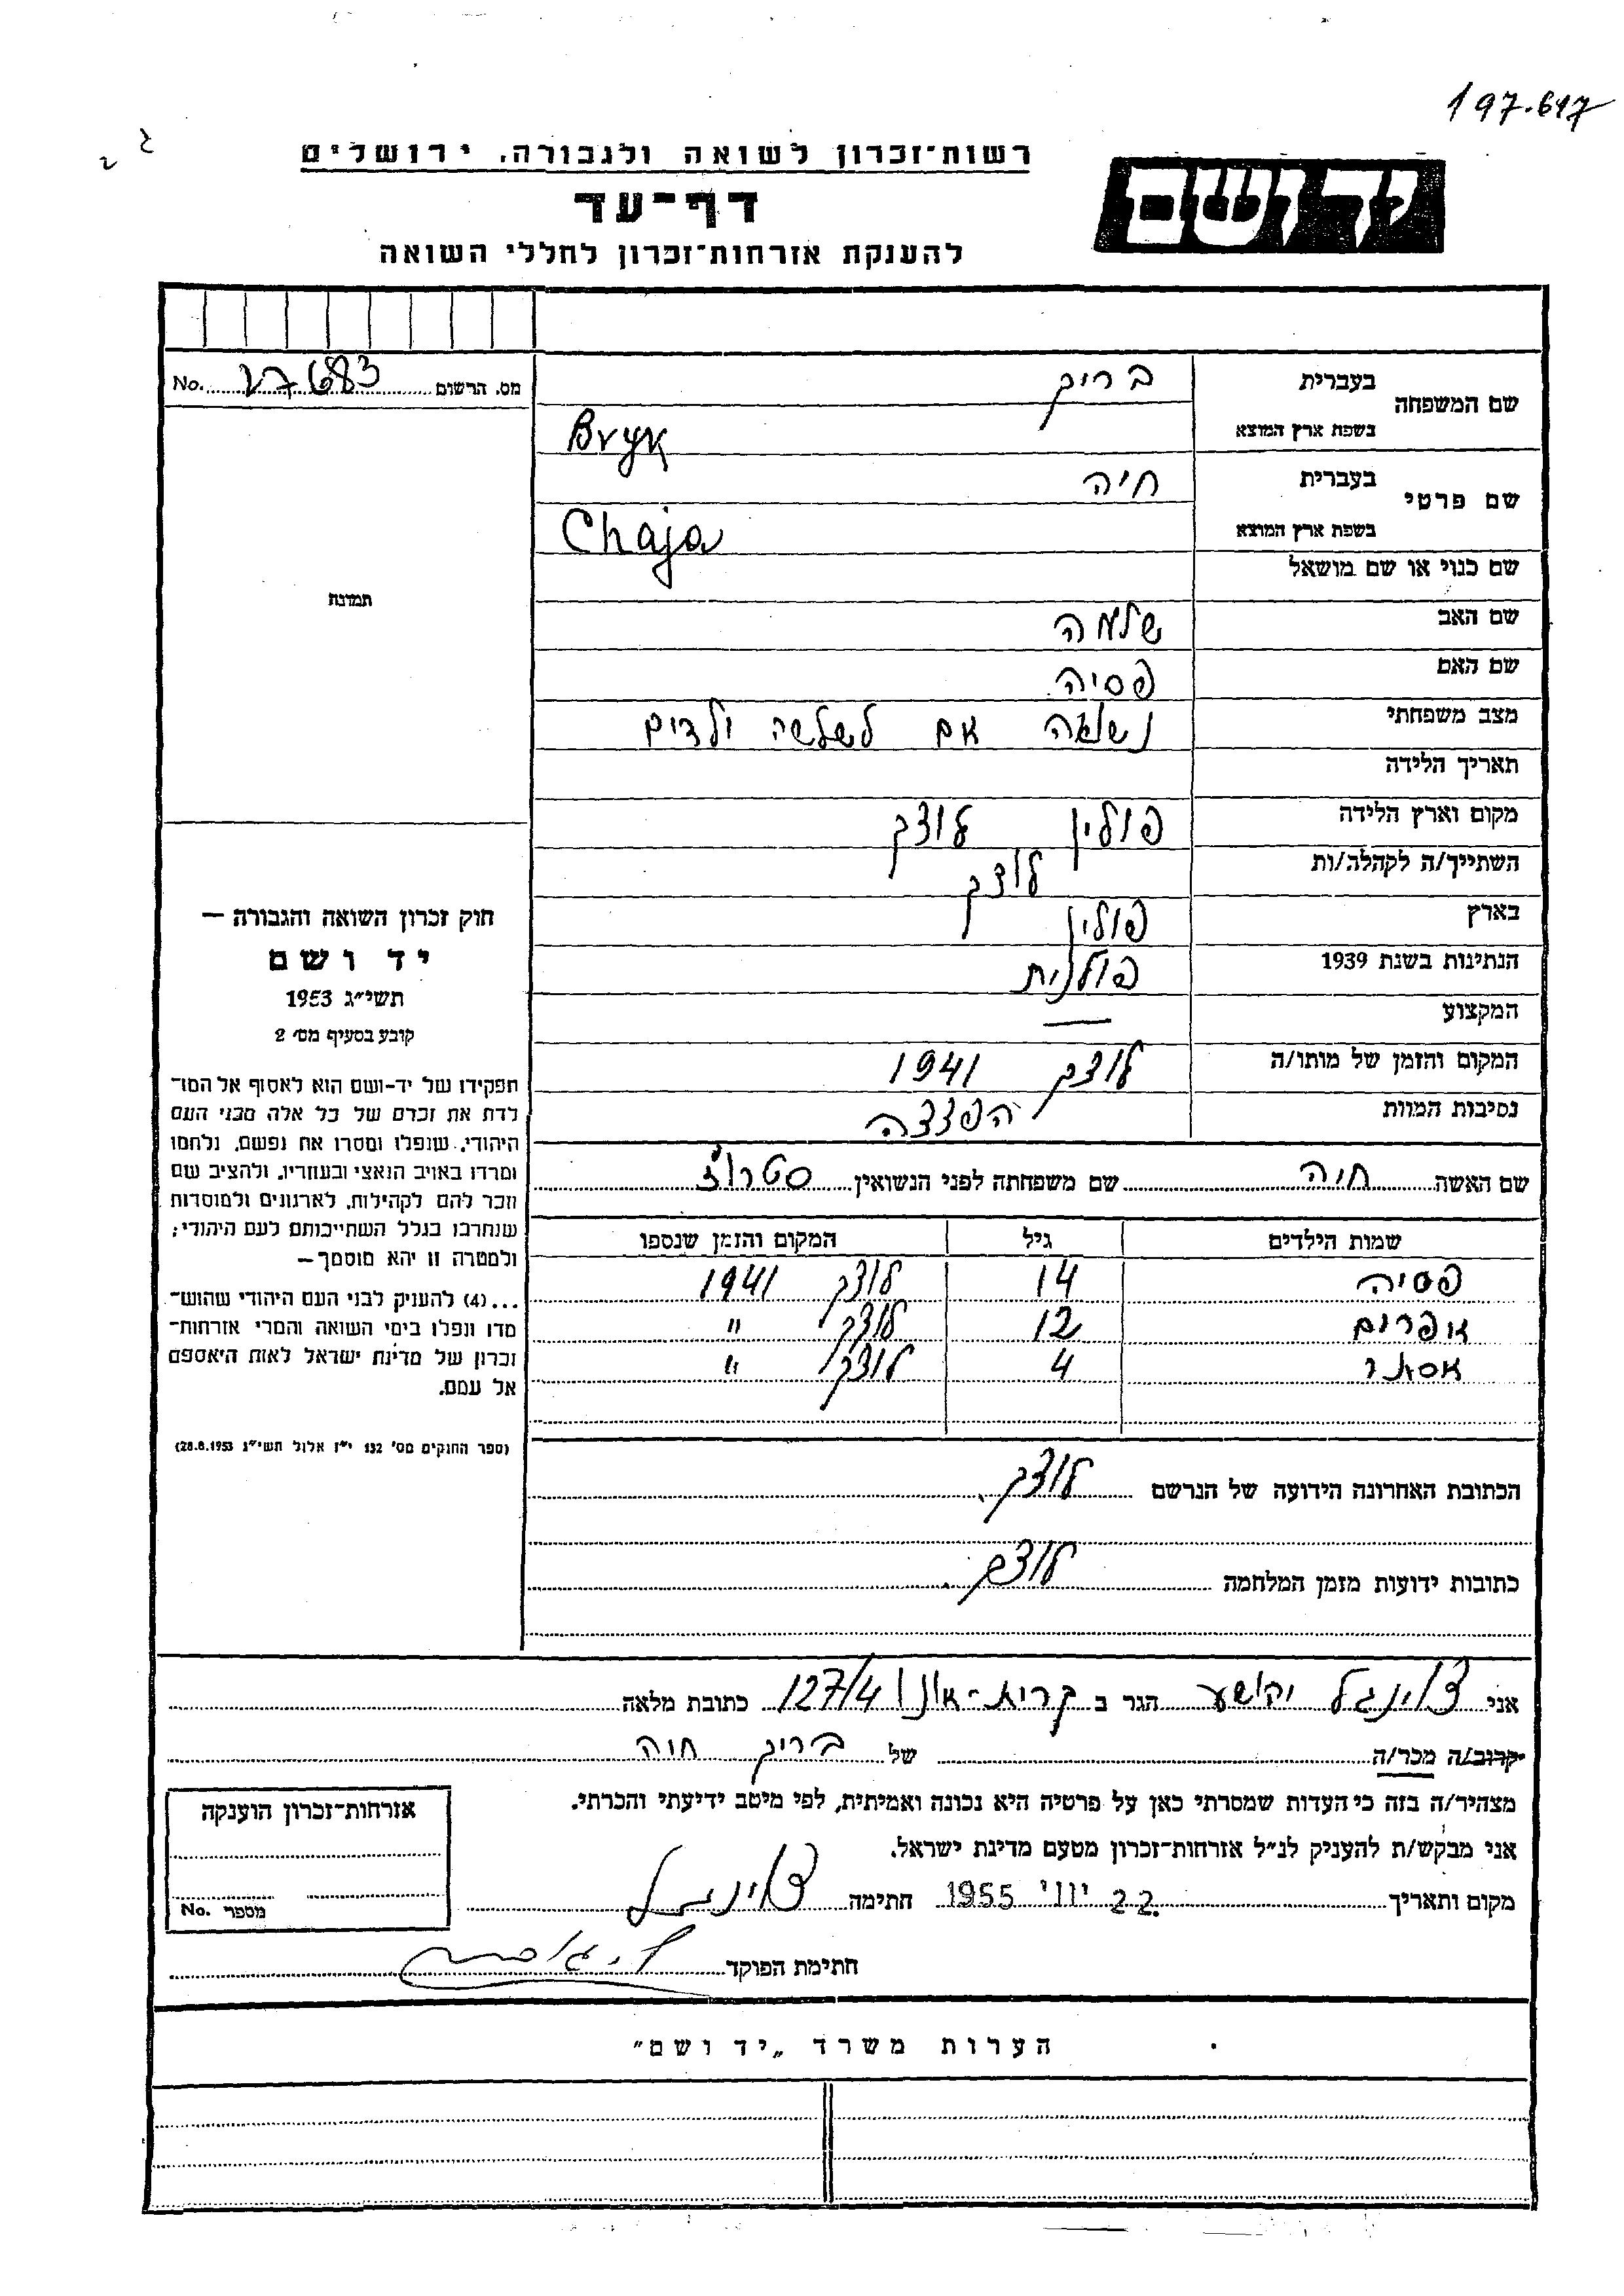 197.617
רשות־זכרון לשואה ולגבורה, ירושלים
יד ושם
דף־עד
להענקת אזרחות־זכרון לחללי השואה
מס. הרשום 27683 No.
שם המשפחה
בעברית בריק
בשפת ארץ המוצא Bryk
שם פרטי
בעברית חיה
בשפת ארץ המוצא Chaja
שם כנוי או שם מושאל
שם האב שלמה
שם האם פסיה
מצב משפחתי נשואה אם לשלשה ילדים
תאריך הלידה
מקום וארץ הלידה פולין לוצק
השתייך/ה לקהלה/ות לוצק
בארץ פולין
הנתינות בשנת 1939 פולנית
המקצוע —
המקום והזמן של מותו/ה לוצק 1941
נסיבות המוות הפצצה
תמונה
חוק זכרון השואה והגבורה —
יד ושם
תשי״ג 1953
קובע בסעיף מס׳ 2
תפקידו של יד-ושם הוא לאסוף אל המו־
לדת את זכרם של כל אלה מבני העם
היהודי, שנפלו ומסרו את נפשם, נלחמו
ומרדו באויב הנאצי ובעוזריו, ולהציב שם
וזכר להם לקהילות, לארגונים ולמוסדות
שנחרבו בגלל השתייכותם לעם היהודי;
ולמטרה זו יהא מוסמך—
...(4) להעניק לבני העם היהודי שהוש־
מדו ונפלו בימי השואה והמרי אזרחות־
זכרון של מדינת ישראל לאות היאספם
אל עמם.
(ספר החוקים מס׳ 132 י״ז אלול תשי״ג 28.8.1953)
שם האשה חיה שם משפחתה לפני הנשואין
שמות הילדים גיל המקום והזמן שנספו
פסיה 14 לוצק 1941
אפרים 12 לוצק "
אסתר 4 לוצק "
הכתובת האחרונה הידועה של הנרשם לוצק.
כתובות ידועות מזמן המלחמה לוצק.
אני צוינגל יהושע הגר ב קרית-אונו 127/4 כתובת מלאה
קרוב/ה מכר/ה של בריק חיה
מצהיר/ה בזה כי העדות שמסרתי כאן על פרטיה היא נכונה ואמיתית, לפי מיטב ידיעתי והכרתי.
אני מבקש/ת להעניק לנ״ל אזרחות־זכרון מטעם מדינת ישראל.
מקום ותאריך 22 יוני 1955 חתימה צוינגל
חתימת הפוקד
אזרחות־זכרון הוענקה
מספר No.
הערות משרד „יד ושם״